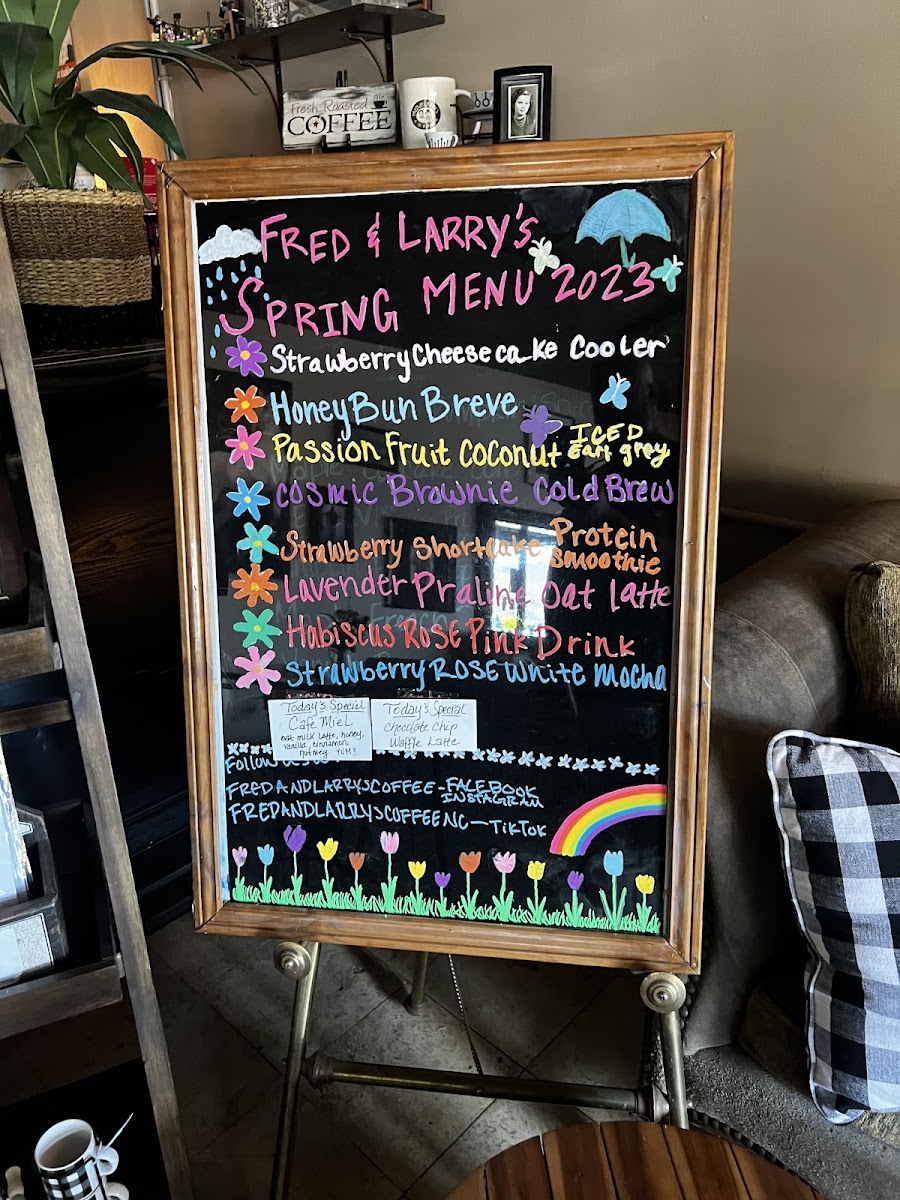 Fresh Roasted
COFFEE
FRED & LARRY'S
SPRING MENU 2023
Strawberry Cheesecake Cooler
Honey Bun Breve
Passion Fruit Coconut ICED
Earl grey
Cosmic Brownie Cold Brew
Strawberry Shortcake Protein
Smoothie
Lavender Praline Oat Latte
Habiscus Rose Pink Drink
Strawberry Rose White Mocha
Today's Special
Cafe Miel
oat milk latte, honey,
vanilla, cinnamon
nutmeg YUM!!
Today's Special
Chocolate Chip
Waffle Latte
Follow
FREDANDLARRYSCOFFEE - FACEBOOK
INSTAGRAM
FREDANDLARRYSCOFFEENC — TikTok